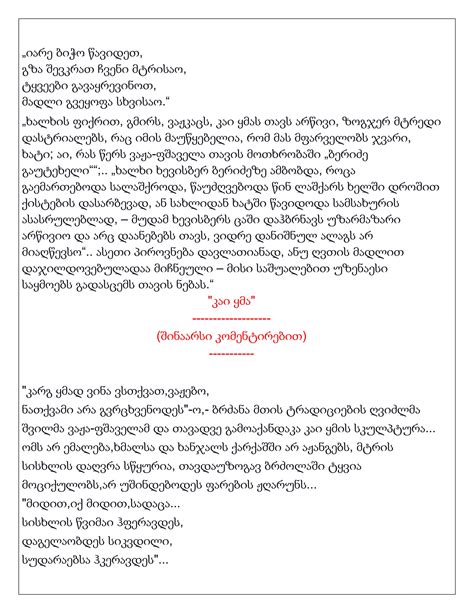 „იარე ბიჭო წავიდეთ,
გზა შევკრათ ჩვენი მტრისაო,
ტყვეები გავაყრევინოთ,
მადლი გვეყოფა სხვისაო.“
„ხალხის ფიქრით, გმირს, ვაჟკაცს, კაი ყმას თავს არწივი, ზოგჯერ მტრედი
დასტრიალებს, რაც იმის მაუწყებელია, რომ მას მფარველობს ჯვარი,
ხატი; აი, რას წერს ვაჟა-ფშაველა თავის მოთხრობაში „ბერიძე
გაუტეხელი““;.. „ხალხი ხევისბერ ბერიძეზე ამბობდა, როცა
გაემართებოდა სალაშქროდა, წაუძღვებოდა წინ ლაშქარს ხელში დროშით
ქისტების დასარბევად, ან სახლიდან ხატში წავიდოდა სამსახურის
ასასრულებლად, – მუდამ ხევისბერს ცაში დაჰბრნავს უზარმაზარი
არწივიო და არც დაანებებს თავს, ვიდრე დანიშნულ ალაგს არ
მიაღწევსო“.. ასეთი პიროვნება დავლათიანად, ანუ ღვთის მადლით
დაჯილდოვებულადაა მიჩნეული – მისი საშუალებით უზენაესი
საყმოებს გადასცემს თავის ნებას.“
"კაი ყმა"
-------------------
(შინაარსი კომენტირებით)
-----------
"კარგ ყმად ვინა ვსთქვათ,ვაჟებო,
ნათქვამი არა გვრცხვენოდეს"-ო,- ბრძანა მთის ტრადიციების ღვიძლმა
შვილმა ვაჟა-ფშაველამ და თავადვე გამოაქანდაკა კაი ყმის სკულპტურა...
ომს არ ემალება,ხმალსა და ხანჯალს ქარქაშში არ აჟანგებს, მტრის
სისხლის დაღვრა სწყურია, თავდაუზოგავ ბრძოლაში ტყვია
მოციქულობს,არ უშინდებოდეს ფარების ჟღარუნს...
"მიდით,იქ მიდით,სადაცა...
სისხლის წვიმაი ჰფერავდეს,
დაგელაობდეს სიკვდილი,
სუდარაებსა ჰკერავდეს"...